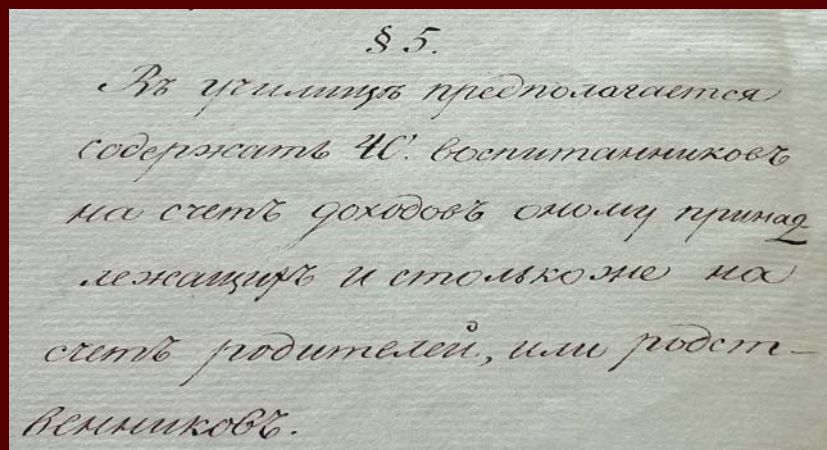 § 5.
Въ училищѣ предполагается
содержать 40. воспитанниковъ
на счетъ доходовъ оному принад-
лежащихъ и столько же на
счетъ родителей, или родст-
венниковъ.